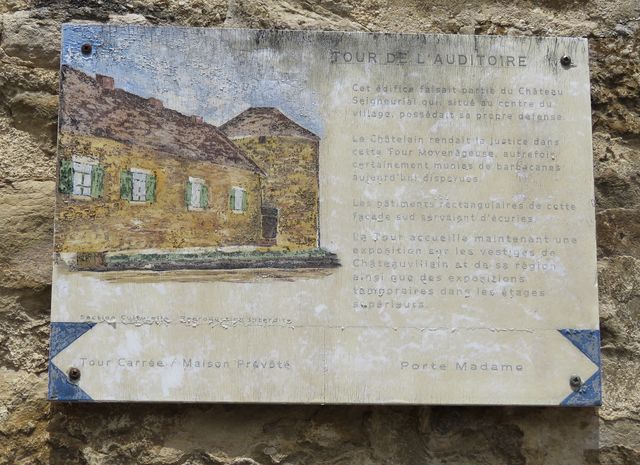 TOUR DE L'AUDITOIRE
Cet édifice faisait partie du Château
Seigneurial qui, situé au centre du
village, possédait sa propre défense.
Le Châtelain rendait la justice dans
cette Tour Moyenâgeuse, autrefois
certainement munies de barbacanes
aujourd'hui disparues.
Les bâtiments rectangulaires de cette
façade sud servaient d'écuries.
La Tour accueille maintenant une
exposition sur les vestiges de
Châteauvillain et de sa région
ainsi que des expositions
temporaires dans les étages
supérieurs.
Section Culturelle Reproduction interdite
Tour Carrée / Maison Prévoté
Porte Madame